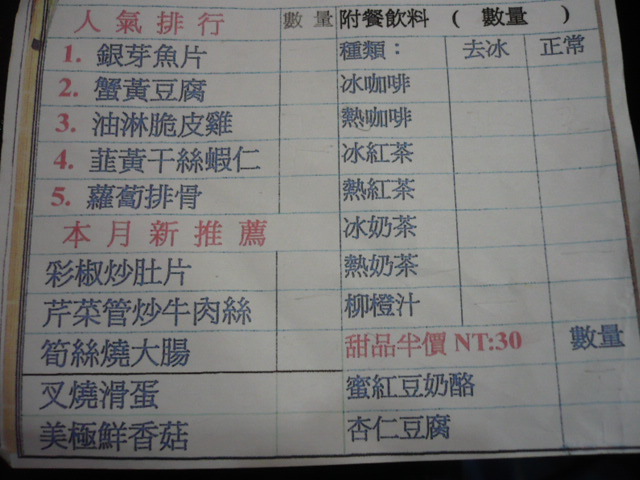 人氣排行 數量
1. 銀芽魚片
2. 蟹黃豆腐
3. 油淋脆皮雞
4. 韮黃干絲蝦仁
5. 蘿蔔排骨
本月新推薦
彩椒炒肚片
芹菜管炒牛肉絲
筍絲燒大腸
叉燒滑蛋
美極鮮香菇
附餐飲料 ( 數量 )
種類： 去冰 正常
冰咖啡
熱咖啡
冰紅茶
熱紅茶
冰奶茶
熱奶茶
柳橙汁
甜品半價 NT:30 數量
蜜紅豆奶酪
杏仁豆腐